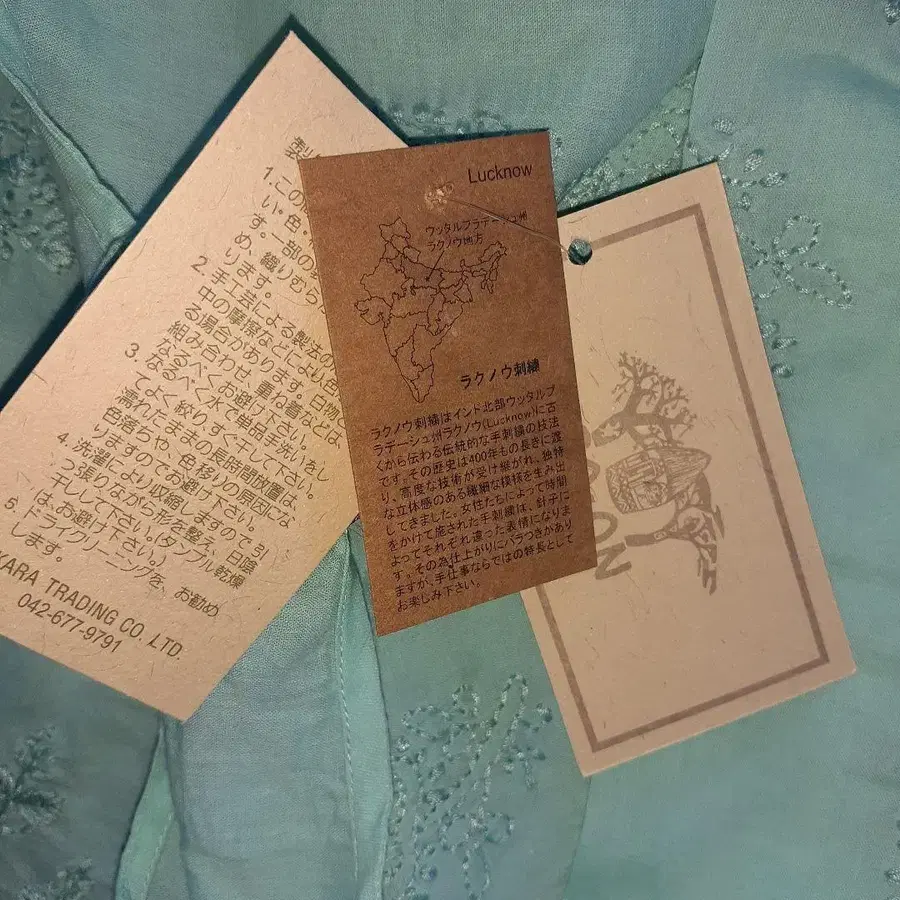 製
1.この
い。色・
す。一部の
め、織りむら
ります。
2. 手工芸による製法の
中の摩擦などにより色
る場合があります。白物
組み合わせ、重ね着などは
なるべくお避け下さい。
3. なるべく水で単品手洗いをし
てよく絞り、すぐ干して下さい。
濡れたままの長時間放置は、
色落ちや、色移りの原因にな
りますのでお避け下さい。
4. 洗濯により収縮しますので引
っ張りながら形を整え、日陰
干しして下さい。(タンブル乾燥
は、お避け下さい。)
5. ドライクリーニングを、お勧め
します。
KARA TRADING CO. LTD.
042-677-9791
Lucknow
ウッタルプラデーシュ州
ラクノウ地方
ラクノウ刺繍
ラクノウ刺繍はインド北部ウッタルプ
ラデーシュ州ラクノウ(Lucknow)に古
くから伝わる伝統的な手刺繍の技法
です。その歴史は400年もの長きに渡
り、高度な技術が受け継がれ、独特
な立体感のある繊細な模様を生み出
してきました。女性たちによって時間
をかけて施された手刺繍は、針子に
よってそれぞれ違った表情になりま
す。その為仕上がりにバラつきがあり
ますが、手仕事ならではの特長として
お楽しみ下さい。